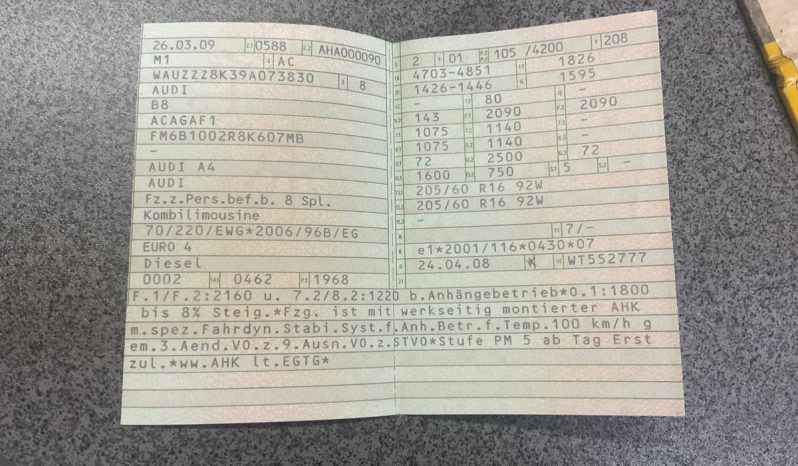 26.03.09 0588 AHA000090
M1 AC
WAUZZZ8K39A073830 8
AUDI
B8
ACAGAF1
FM6B1002R8K607MB
-
AUDI A4
AUDI
Fz.z.Pers.bef.b. 8 Spl.
Kombilimousine
70/220/EWG*2006/96B/EG
EURO 4
Diesel
0002 0462 1968
2 01 105 /4200 208
4703-4851 1826
1426-1446 1595
- 80 -
143 2090 2090
1075 1140 -
1075 1140 -
72 2500 72
1600 750 5 -
205/60 R16 92W
205/60 R16 92W
-
7/-
e1*2001/116*0430*07
24.04.08 K WT552777
F.1/F.2:2160 u. 7.2/8.2:1220 b.Anhängebetrieb*0.1:1800
bis 8% Steig.*Fzg. ist mit werkseitig montierter AHK
m.spez.Fahrdyn.Stabi.Syst.f.Anh.Betr.f.Temp.100 km/h g
em.3.Aend.VO.z.9.Ausn.VO.z.STVO*Stufe PM 5 ab Tag Erst
zul.*ww.AHK lt.EGTG*